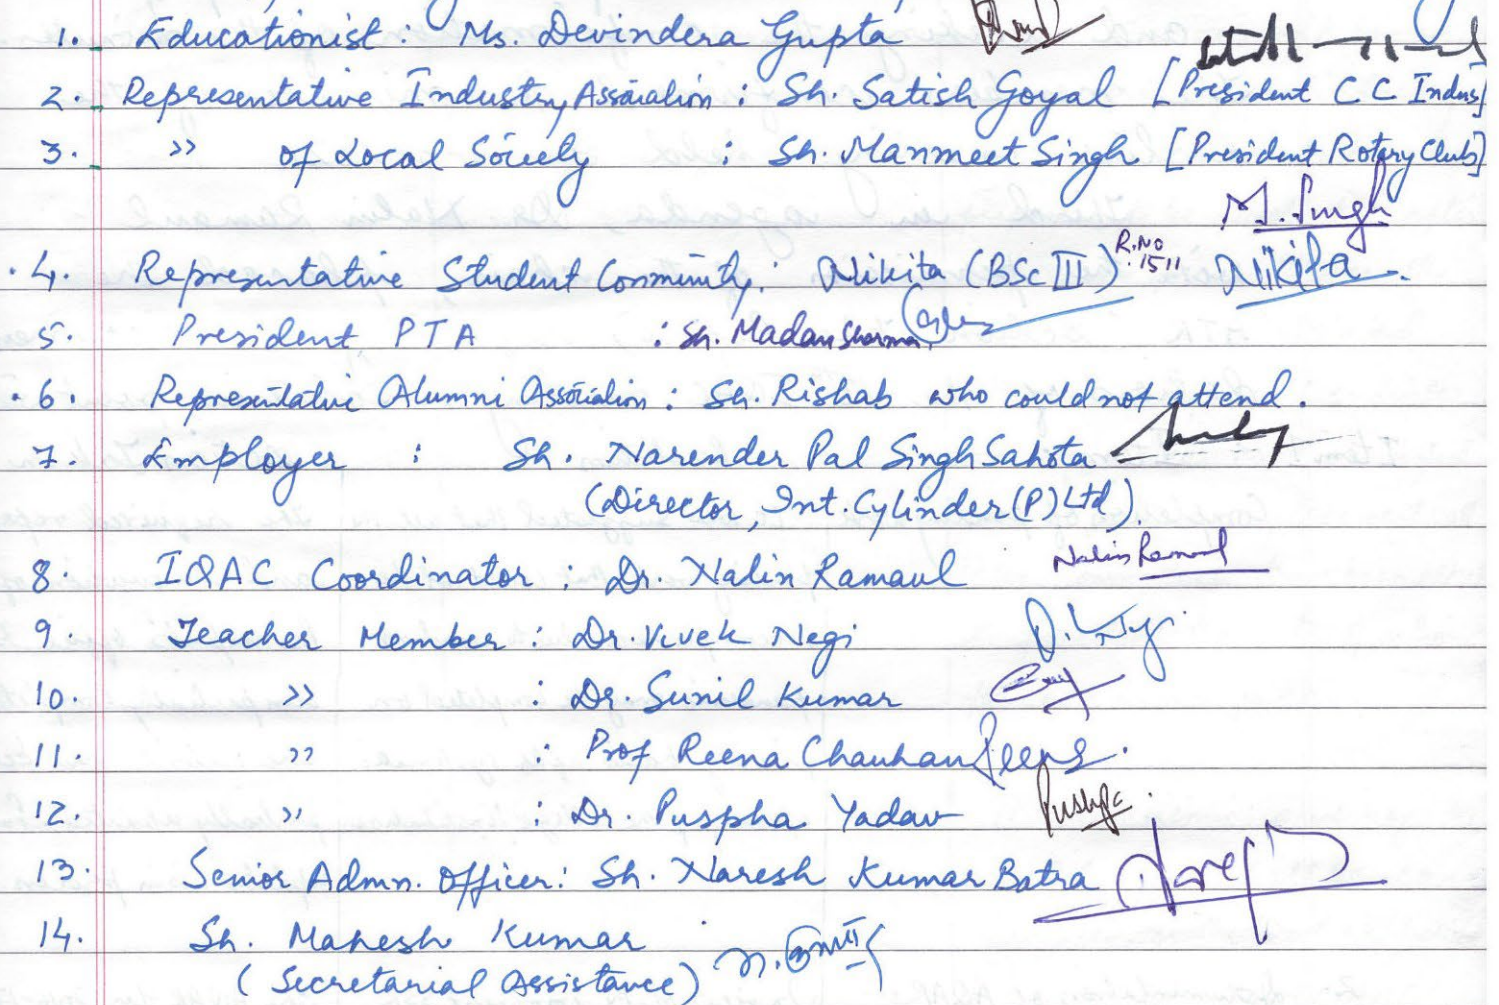 1. Educationist : Ms. Devindera Gupta
2. Representative Industry Association : Sh. Satish Goyal [President C C Indus]
3. " of Local Society : Sh. Manmeet Singh [President Rotary Club]
M. Singh
4. Representative Student Community : Nikita (BSc III) R.No 1511 Nikita
5. President PTA : Sh. Madan Sharma
6. Representative Alumni Association : Sh. Rishab who could not attend.
7. Employer : Sh. Narender Pal Singh Sahota
(Director, Int. Cylinder (P) Ltd).
8. IQAC Coordinator : Dr. Nalin Ramaul Nalin Ramaul
9. Teacher Member : Dr. Vivek Negi
10. " : Dr. Sunil Kumar
11. " : Prof Reena Chauhan Reena
12. " : Dr. Puspha Yadav Pushpa
13. Senior Admn. Officer : Sh. Naresh Kumar Batra
14. Sh. Mahesh Kumar
(Secretarial Assistance)